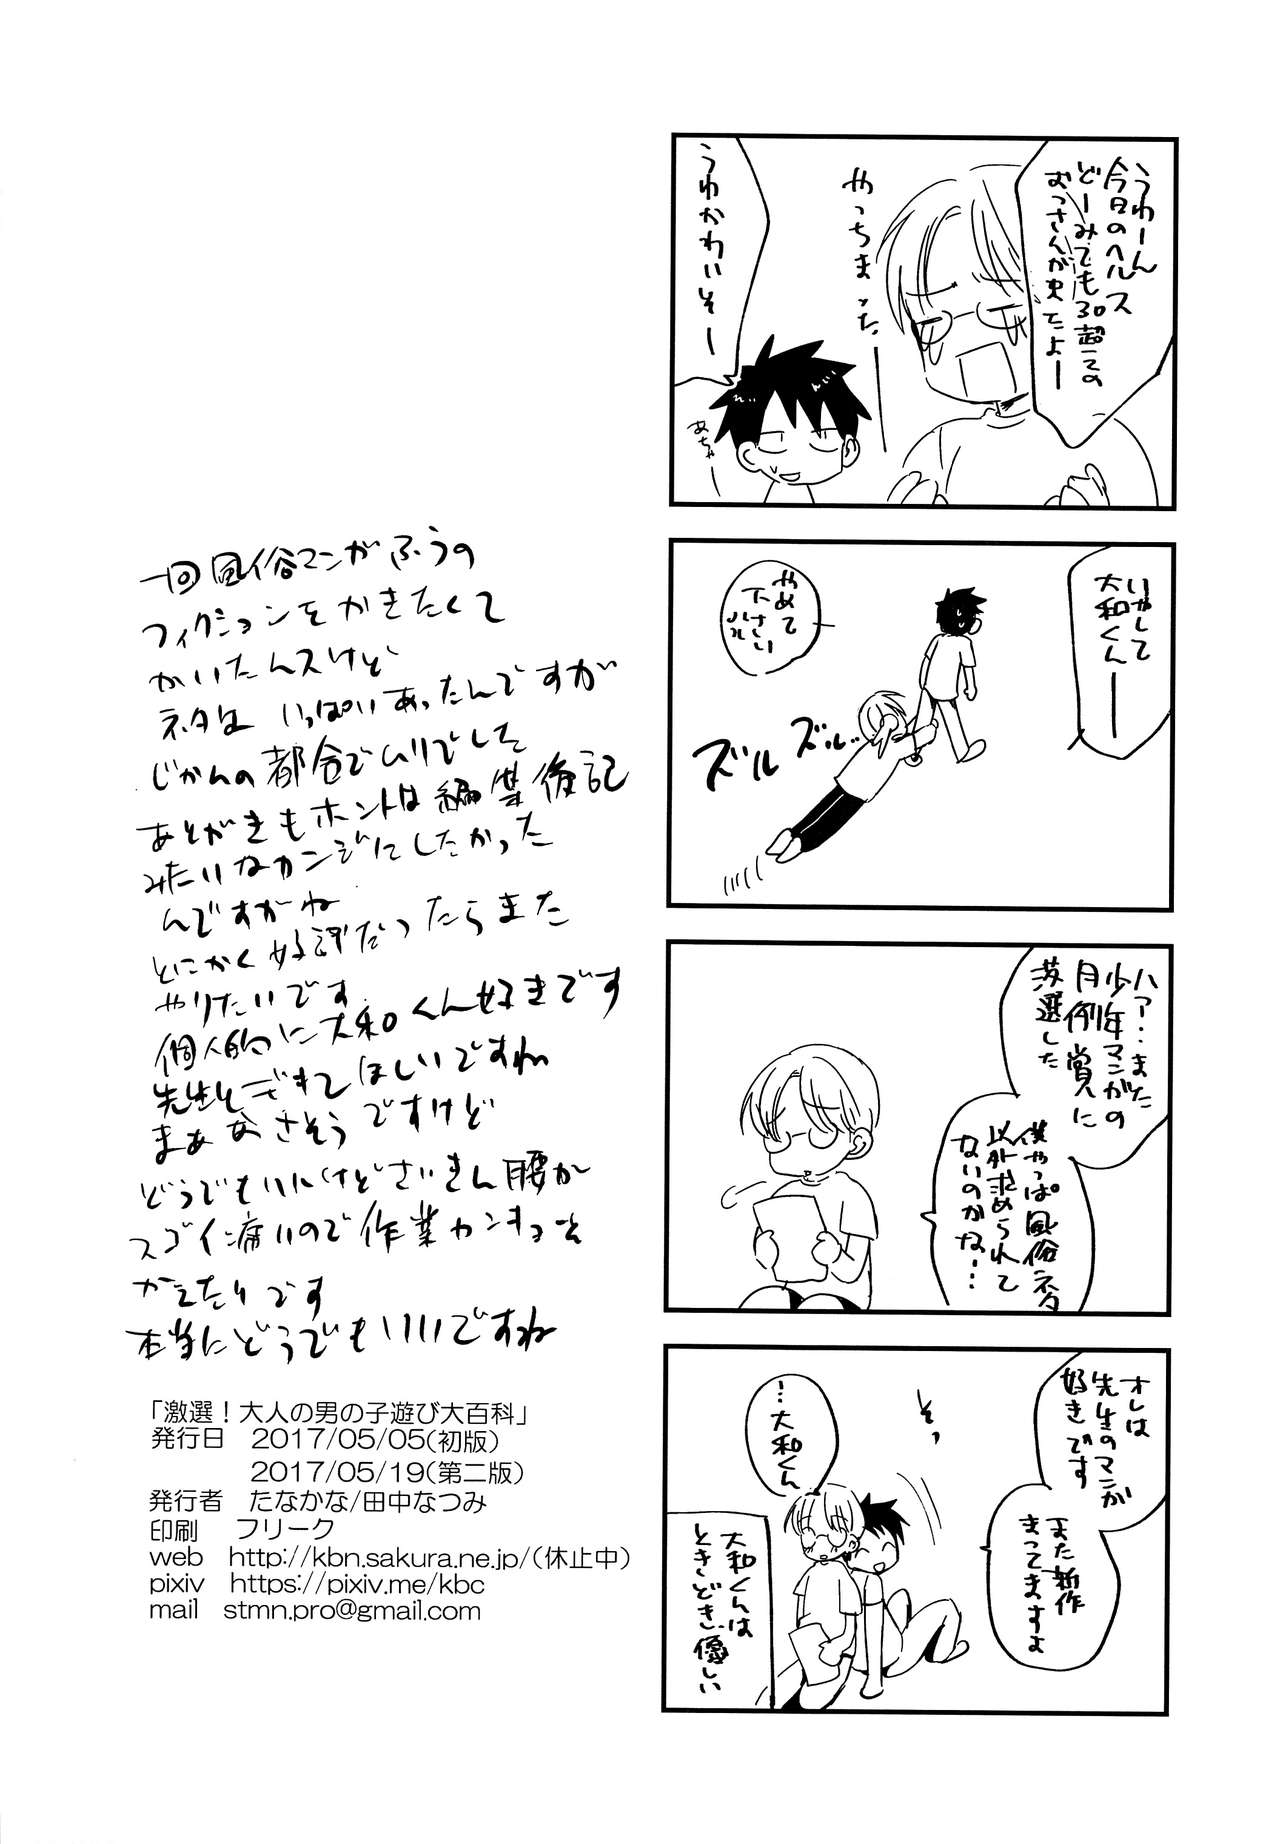 うわーん
今日のヘルス
どーみても30超えの
おっさんが来たよー
やっちまったー
うわかわいそー
あちゃー
いやして
大和くんーー
やめて
下さい
ズルズル
ハァ・・また
少年マンガの
月例賞に
落選した
僕やっぱ風俗ネタ
以外求められて
ないのかな・・・
オレは
先生のマンガ
好きです
また新作
まってますよ
そっ
・・・大和くん
大和くんは
ときどき優しい
一回風俗マンガふうの
フィクションをかきたくて
かいたんスけど
ネタは いっぱいあったんですが
じかんの都合でムリでした
あとがきもホントは編集後記
みたいなカンジにしたかった
んですがね
とにかく好評だったらまた
やりたいです
個人的に大和くん好きです
先生とデキてほしいですね
まぁなさそうですけど
どうでもいいけどさいきん腰が
スゴイ痛いので作業カンキョを
かえたいです
本当にどうでもいいですね
「激選！大人の男の子遊び大百科」
発行日 2017/05/05(初版)
2017/05/19(第二版)
発行者 たなかな/田中なつみ
印刷 フリーク
web http://kbn.sakura.ne.jp/(休止中)
pixiv https://pixiv.me/kbc
mail stmn.pro@gmail.com